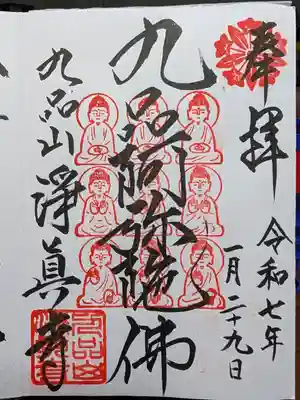 奉拝
令和七年
一月二十九日
九品阿弥陀佛
九品山淨真寺